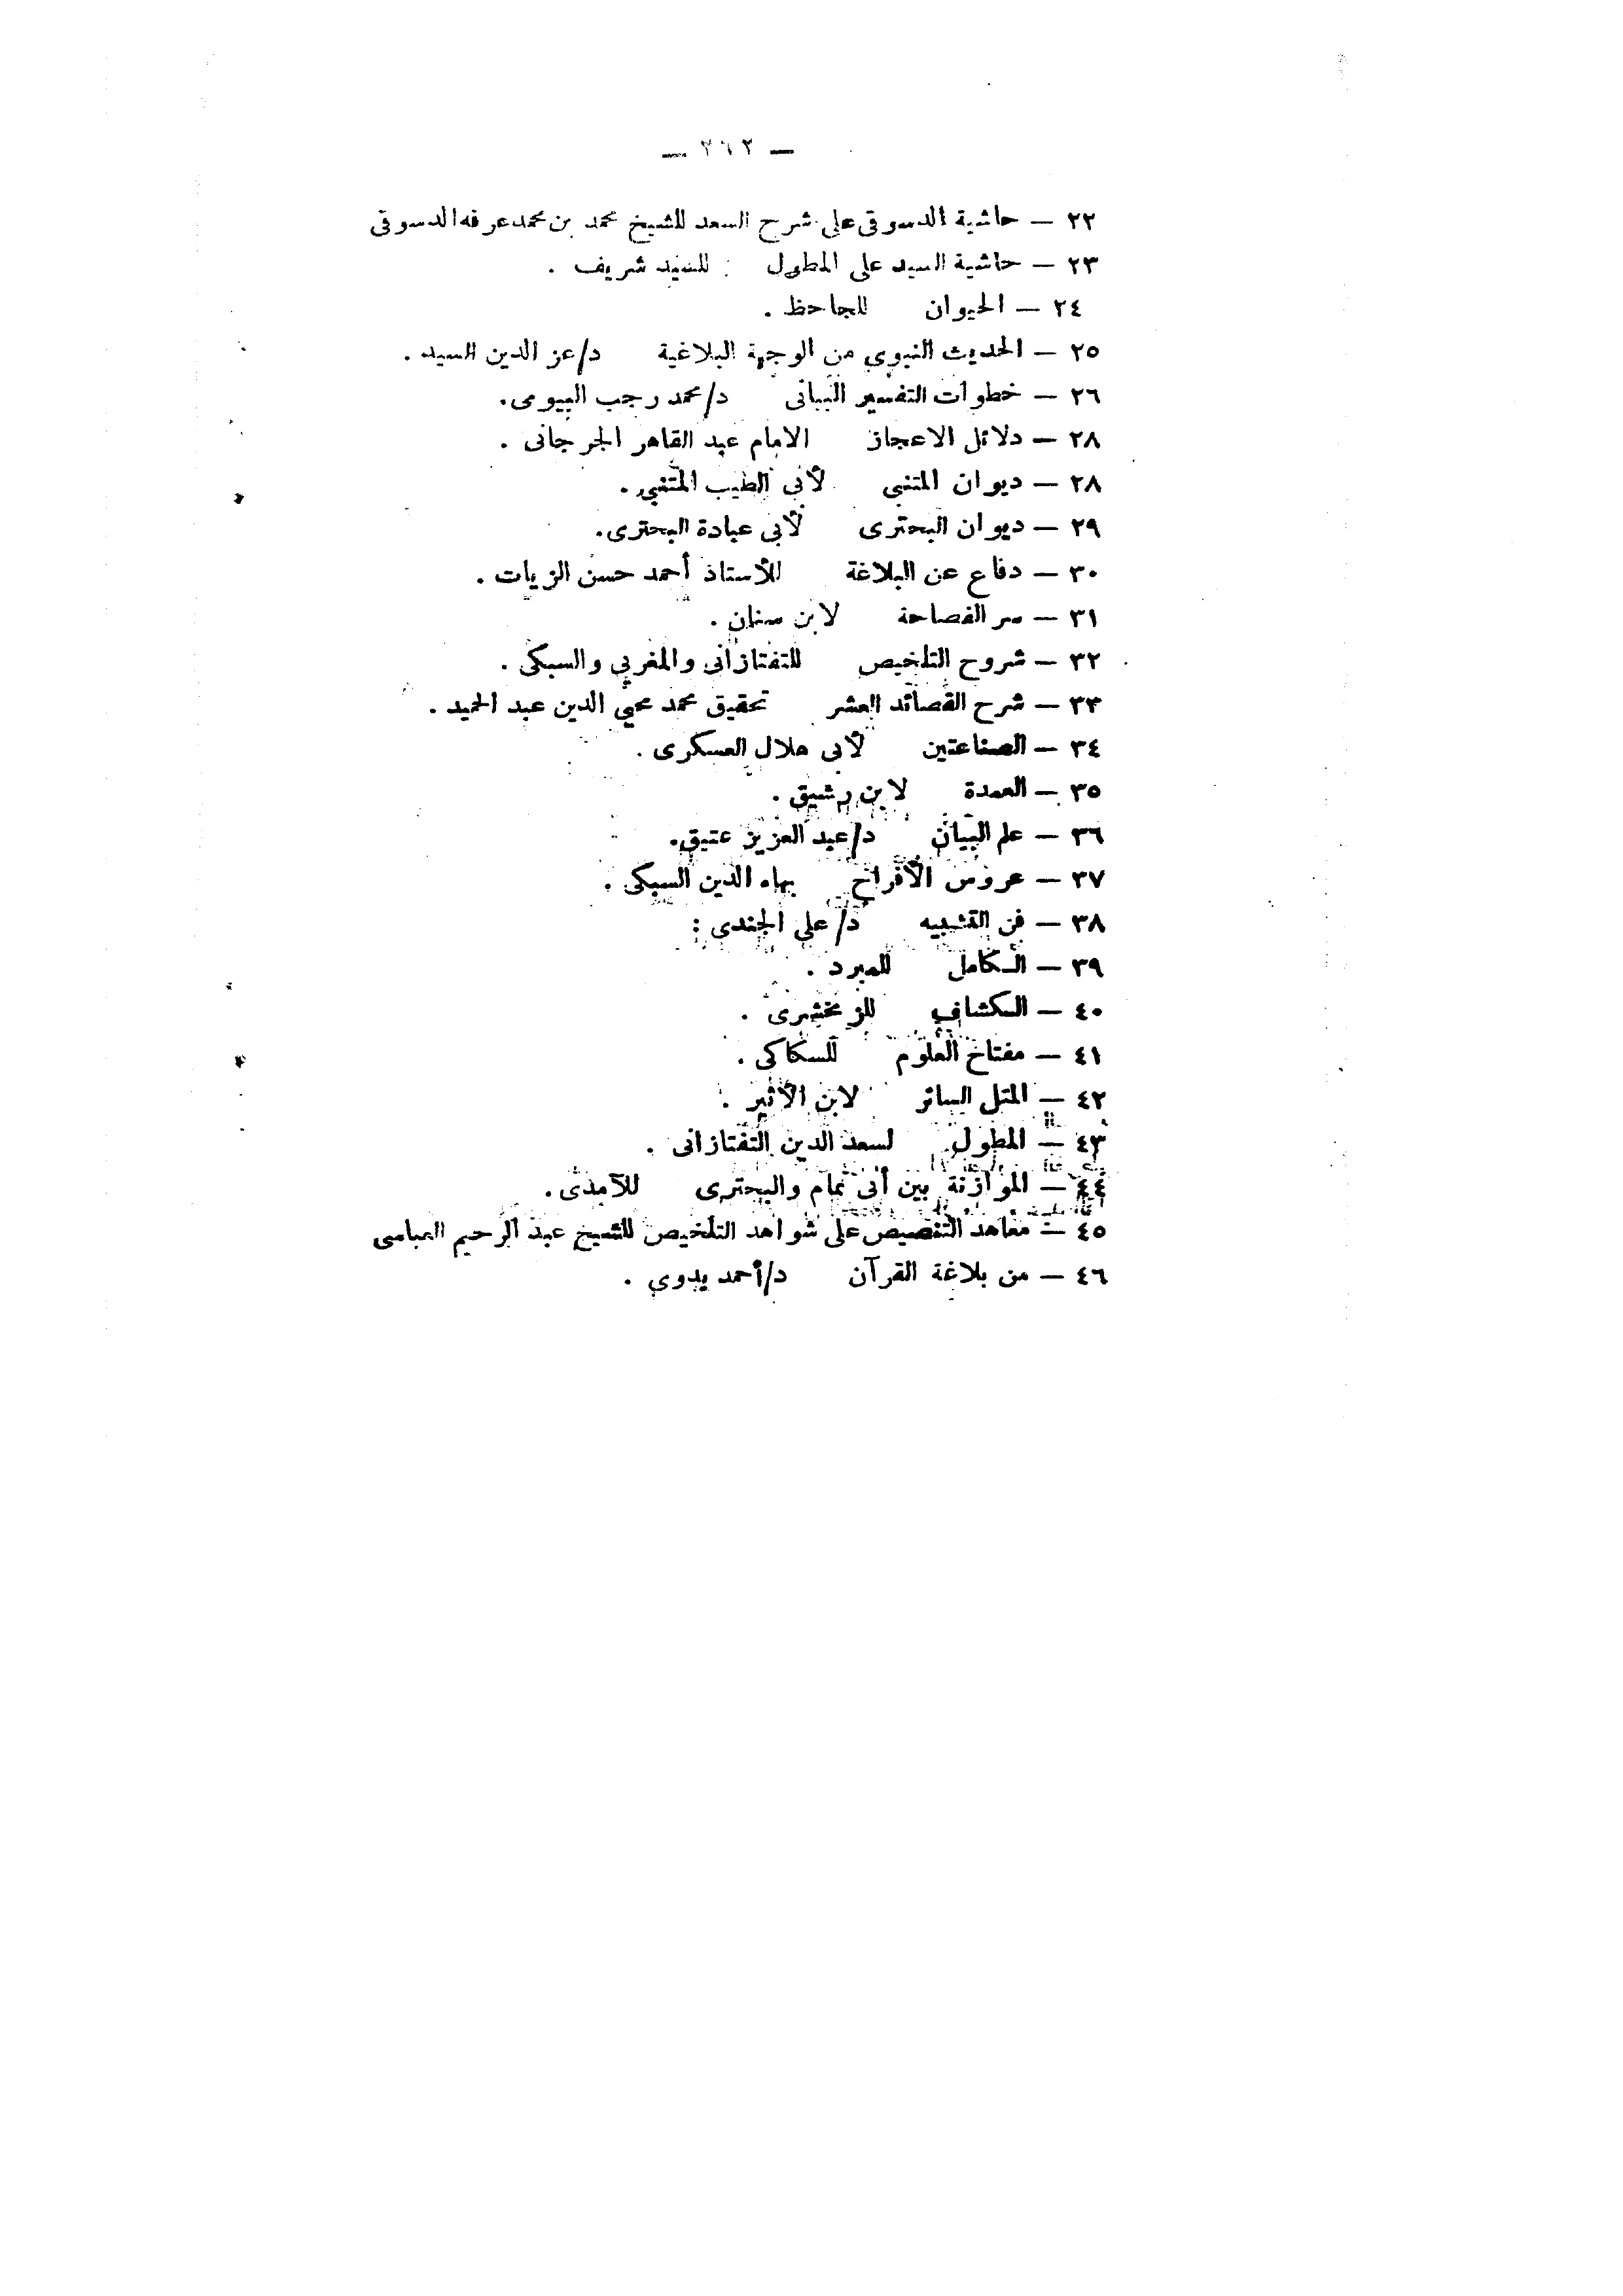 — ٢٦٢ —
٢٢ — حاشية الدسوقى على شرح السعد للشيخ محمد بن محمد عرفه الدسوقى
٢٣ — حاشية السيد على المطول للسيد شريف .
٢٤ — الحيوان للجاحظ .
٢٥ — الحديث النبوى من الوجهة البلاغية د/عز الدين السيد .
٢٦ — خطوات التفسير البيانى د/محمد رجب البيومى.
٢٨ — دلائل الاعجاز الامام عبد القاهر الجرجانى .
٢٨ — ديوان المتنبى لأبى الطيب المتنبى .
٢٩ — ديوان البحترى لأبى عبادة البحترى.
٣٠ — دفاع عن البلاغة للأستاذ أحمد حسن الزيات .
٣١ — سر الفصاحة لابن سنان .
٣٢ — شروح التلخيص للتفتازانى والمغربى والسبكى .
٣٣ — شرح القصائد العشر تحقيق محمد محيى الدين عبد الحميد .
٣٤ — الصناعتين لأبى هلال العسكرى .
٣٥ — العمدة لابن رشيق .
٣٦ — علم البيان د/عبد العزيز عتيق.
٣٧ — عروس الأفراح بهاء الدين السبكى .
٣٨ — فن التشبيه د/ على الجندى :
٣٩ — الكامل للمبرد .
٤٠ — الكشاف للزمخشرى .
٤١ — مفتاح العلوم للسكاكى .
٤٢ — المثل السائر لابن الأثير .
٤٣ — المطول لسعد الدين التفتازانى .
٤٤ — الموازنة بين أبى تمام والبحترى للآمدى .
٤٥ — معاهد التنصيص على شواهد التلخيص للشيخ عبد الرحيم العباسى
٤٦ — من بلاغة القرآن د/أحمد بدوى .